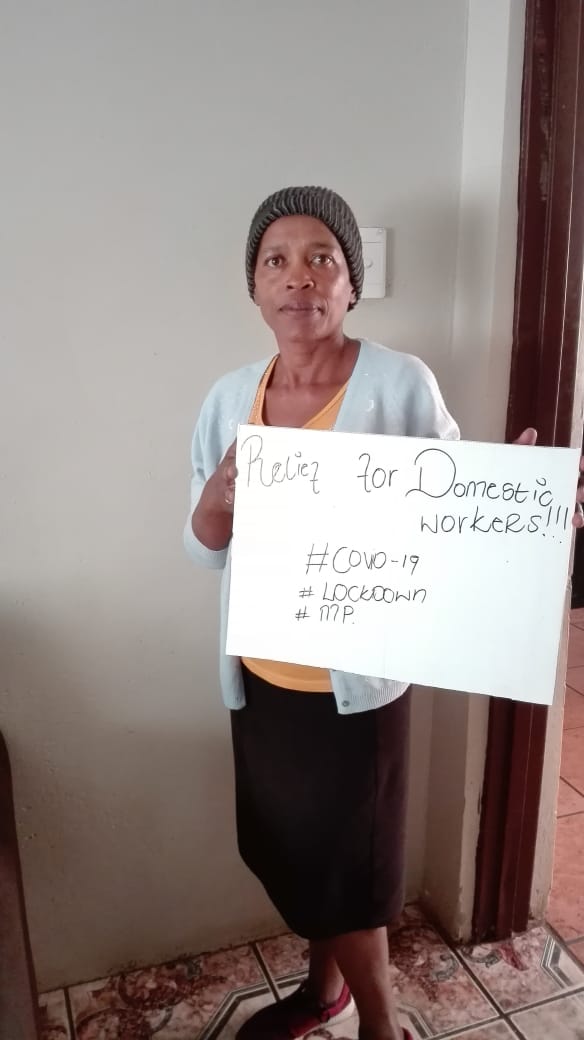 Relief for Domestic
workers!!!
#COVID-19
# LOCKDOWN
# MP.